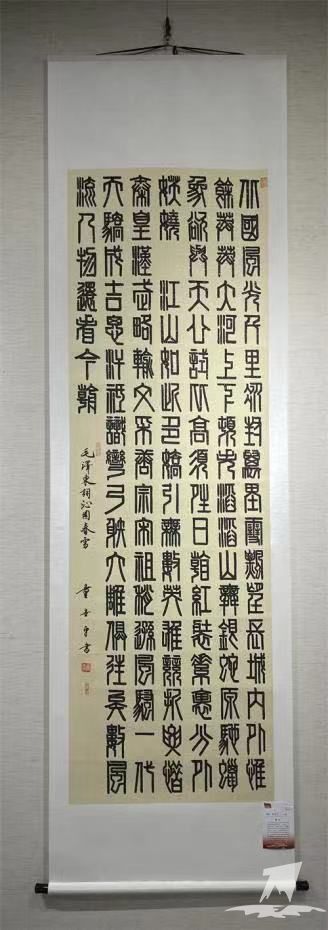 北國風光千里冰封萬里雪飄望長城內外惟
餘莽莽大河上下頓失滔滔山舞銀蛇原馳蠟
象欲與天公試比高須晴日看紅裝素裹分外
妖嬈 江山如此多嬌引無數英雄競折腰惜
秦皇漢武略輸文采唐宗宋祖稍遜風騷一代
天驕成吉思汗祇識彎弓射大雕俱往矣數風
流人物還看今朝
毛澤東詞沁園春雪
書